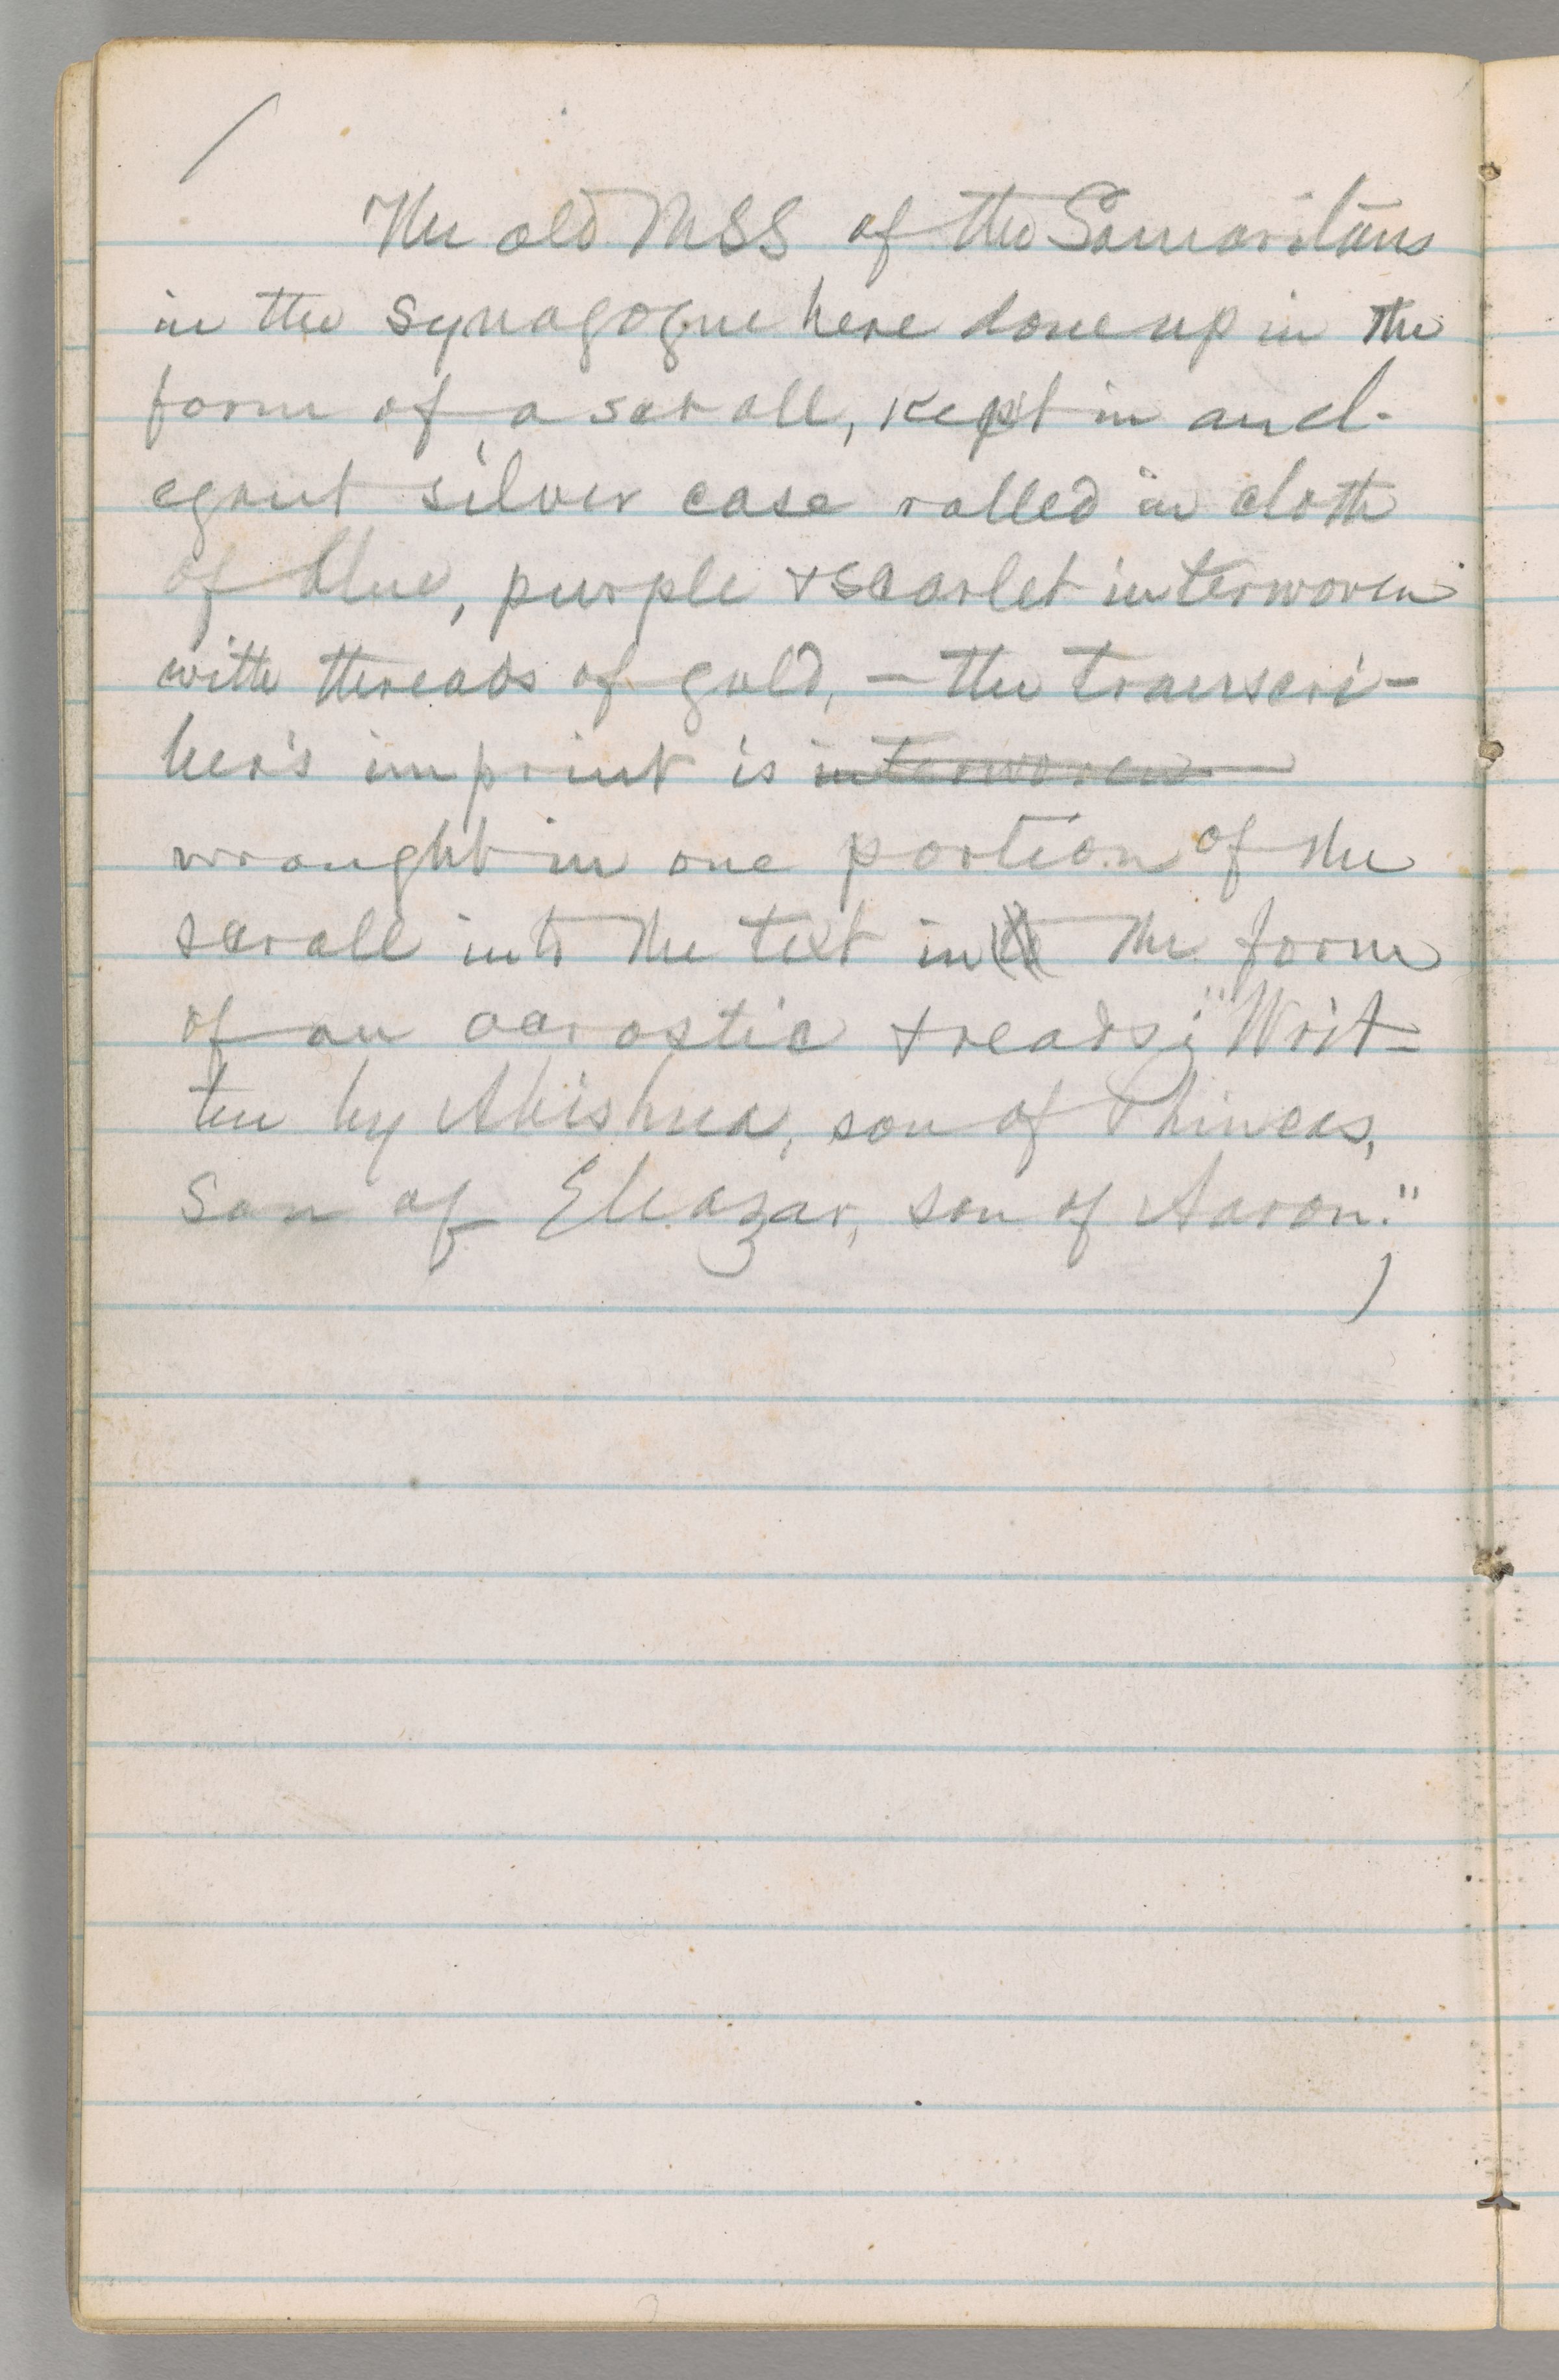 The old MSS of the Samaritans
in the synagogue here done up in the
form of a scroll, kept in an el-
egant silver case rolled in cloth
of blue, purple & scarlet interwoven
with threads of gold, — the transcri-
ber's imprint is interwoven
wrought in one portion of the
scroll into the text in the form
of an acrostic & reads; "Writ-
ten by Abishua, son of Phineas,
son of Eleazar, son of Aaron."
)